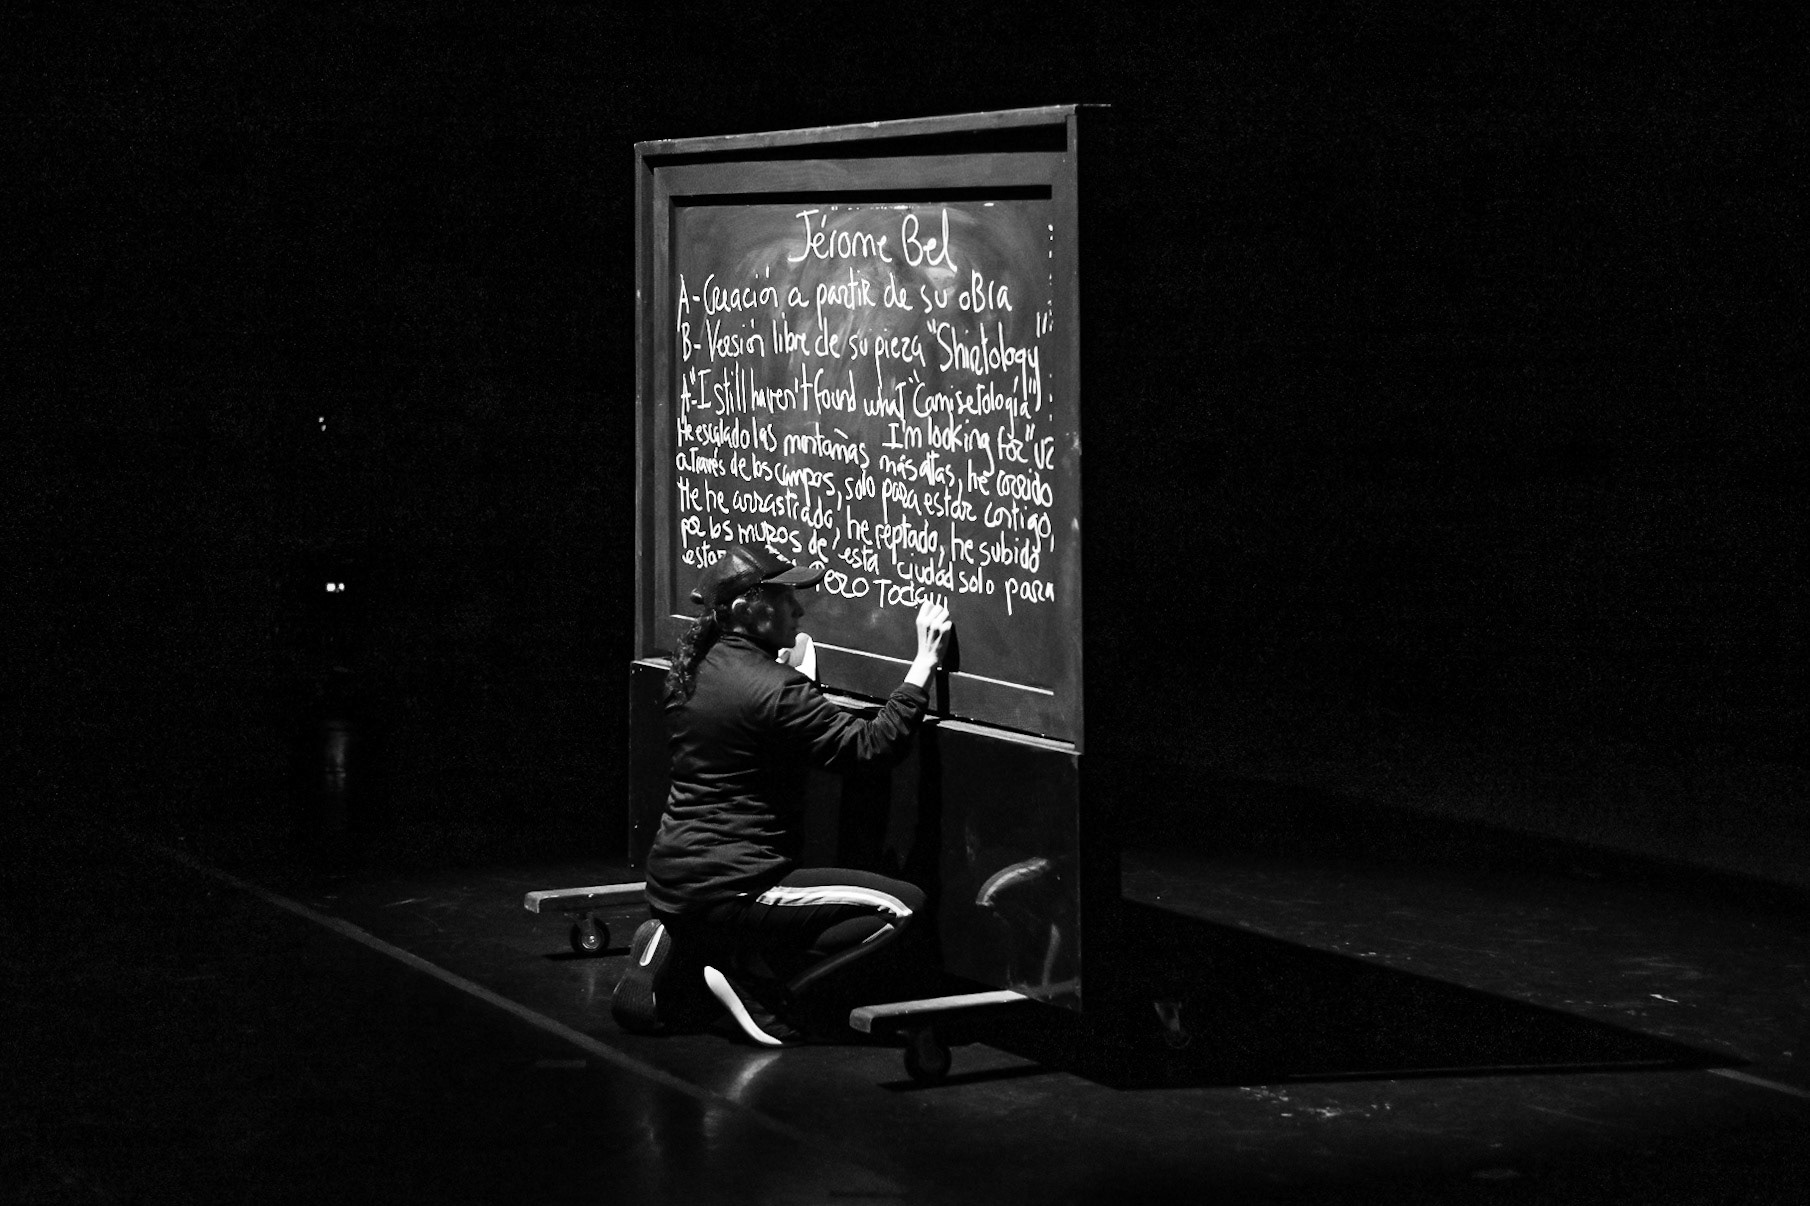 Jérome Bel
A-Creación a partir de su oBra
B-Versión libre de su pieza "Shirtology"
A-"I still haven't found what ("Camisetología")
I'm looking for" U2
He escalado las montañas más altas, he corrido
a través de los campos, solo para estar contigo,
He he arrastrado, he reptado, he subido
por los muros de esta ciudad solo para
estar Pero Todaví